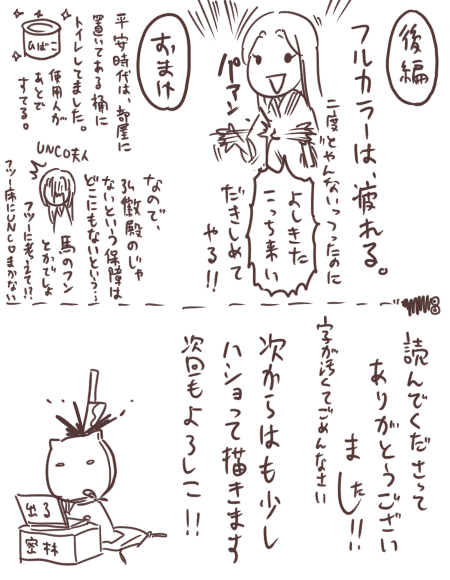 後編
フルカラーは、疲れる。
二度とやんないっつったのに
パアン
よしきた
こっち来い
だきしめて
やる!!
おまけ
平安時代は、部屋に
置いてある桶に
トイレしてました。
使用人が
あとで
すてる。
ひばこ
なので、
弘徽殿のじゃ
ないという保障は
どこにもないという…
UNCO夫人
馬のフン
とかでしょ
フツーに考えて!?
フツー床にUNCOまかない
読んでくださって
ありがとうござい
ました!!
字が汚くてごめんなさい
次からはも少し
ハショって描きます
次回もよろしこ!!
出る
密林